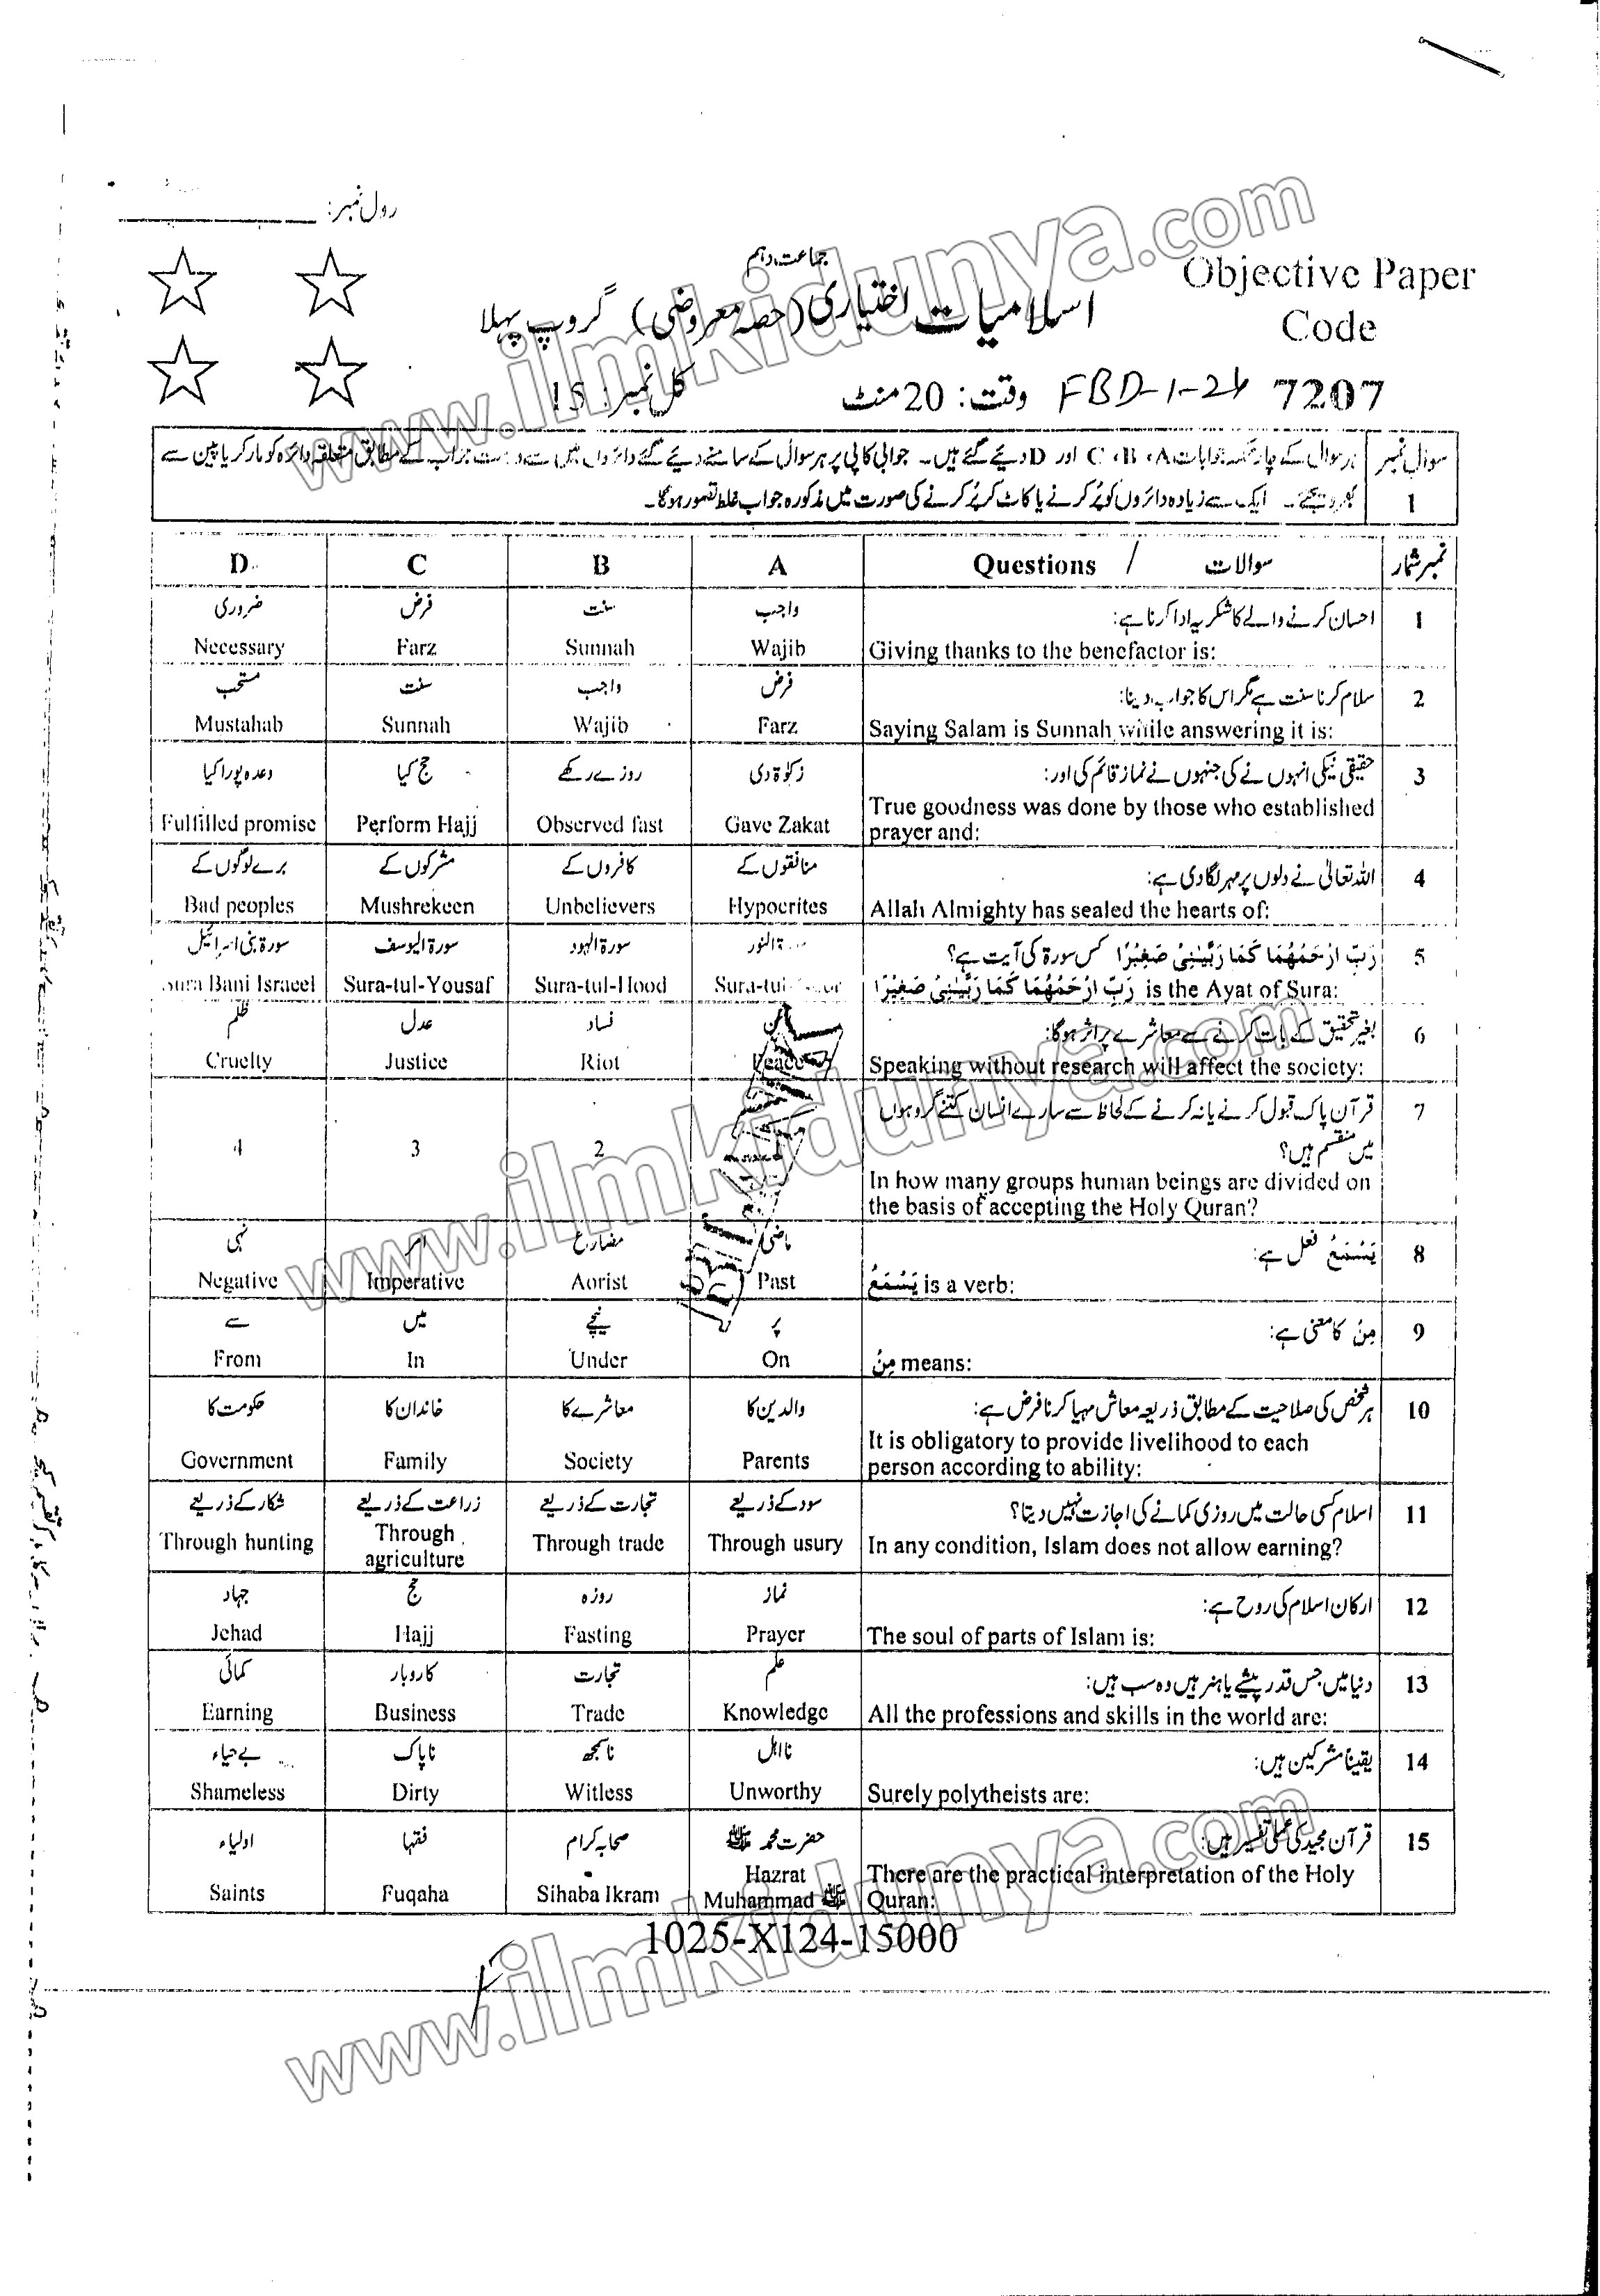 رول نمبر:
جماعت دہم
Objective Paper
اسلامیات اختیاری (حصہ معروضی) گروپ پہلا
Code
7207
FBD-1-24
وقت: 20 منٹ
کل نمبر: 15
سوال نمبر 1
ہر سوال کے چار ممکنہ جوابات A، B، C اور D دیئے گئے ہیں۔ جوابی کاپی پر ہر سوال کے سامنے دیئے گئے دائروں میں سے درست جواب کے مطابق متعلقہ دائرہ کو مارکر یا پین سے
بھر دیجئے۔ ایک سے زیادہ دائروں کو پُر کرنے یا کاٹ کر پُر کرنے کی صورت میں مذکورہ جواب غلط تصور ہوگا۔
نمبر شمار سوالات / Questions A B C D
1 احسان کرنے والے کا شکریہ ادا کرنا ہے: واجب سنت فرض ضروری
Giving thanks to the benefactor is: Wajib Sunnah Farz Necessary
2 سلام کرنا سنت ہے مگر اس کا جواب دینا: فرض واجب سنت مستحب
Saying Salam is Sunnah while answering it is: Farz Wajib Sunnah Mustahab
3 حقیقی نیکی انہوں نے کی جنہوں نے نماز قائم کی اور: زکوٰۃ دی روزے رکھے حج کیا وعدہ پورا کیا
True goodness was done by those who established
prayer and: Gave Zakat Observed fast Perform Hajj Fulfilled promise
4 اللہ تعالیٰ نے دلوں پر مہر لگا دی ہے: منافقوں کے کافروں کے مشرکوں کے برے لوگوں کے
Allah Almighty has sealed the hearts of: Hypocrites Unbelievers Mushrekeen Bad peoples
5 رَبِّ ارْحَمْهُمَا كَمَا رَبَّيٰنِىْ صَغِيْرًا کس سورۃ کی آیت ہے؟ النور سورۃ الہود سورۃ الیوسف سورۃ بنی اسرائیل
رَبِّ ارْحَمْهُمَا كَمَا رَبَّيٰنِىْ صَغِيْرًا is the Ayat of Sura: Sura-tul- Sura-tul-Hood Sura-tul-Yousaf Sura Bani Israeel
6 بغیر تحقیق کے بات کرنے سے معاشرے پر اثر ہوگا: فساد عدل ظلم
Speaking without research will affect the society: Peace Riot Justice Cruelty
7 قرآن پاک قبول کرنے یا نہ کرنے کے لحاظ سے سارے انسان کتنے گروہوں
میں منقسم ہیں؟ 2 3 4
In how many groups human beings are divided on
the basis of accepting the Holy Quran?
8 يَسْمَعُ فعل ہے: ماضی مضارع امر نہی
يَسْمَعُ is a verb: Past Aorist Imperative Negative
9 مِنْ کا معنی ہے: پر نیچے میں سے
مِنْ means: On Under In From
10 ہر شخص کی صلاحیت کے مطابق ذریعہ معاش مہیا کرنا فرض ہے: والدین کا معاشرے کا خاندان کا حکومت کا
It is obligatory to provide livelihood to each
person according to ability: Parents Society Family Government
11 اسلام کسی حالت میں روزی کمانے کی اجازت نہیں دیتا؟ سود کے ذریعے تجارت کے ذریعے زراعت کے ذریعے شکار کے ذریعے
In any condition, Islam does not allow earning? Through usury Through trade Through agriculture Through hunting
12 ارکان اسلام کی روح ہے: نماز روزہ حج جہاد
The soul of parts of Islam is: Prayer Fasting Hajj Jehad
13 دنیا میں جس قدر پیشے یا ہنر ہیں وہ سب ہیں: علم تجارت کاروبار کمائی
All the professions and skills in the world are: Knowledge Trade Business Earning
14 یقیناً مشرکین ہیں: نااہل ناسمجھ ناپاک بے حیاء
Surely polytheists are: Unworthy Witless Dirty Shameless
15 قرآن مجید کی عملی تفسیر ہیں: حضرت محمد ﷺ صحابہ کرام فقہا اولیاء
There are the practical interpretation of the Holy
Quran: Hazrat Muhammad ﷺ Sihaba Ikram Fuqaha Saints
1025-X124-15000
www.ilmkidunya.com
www.ilmkidunya.com
www.ilmkidunya.com